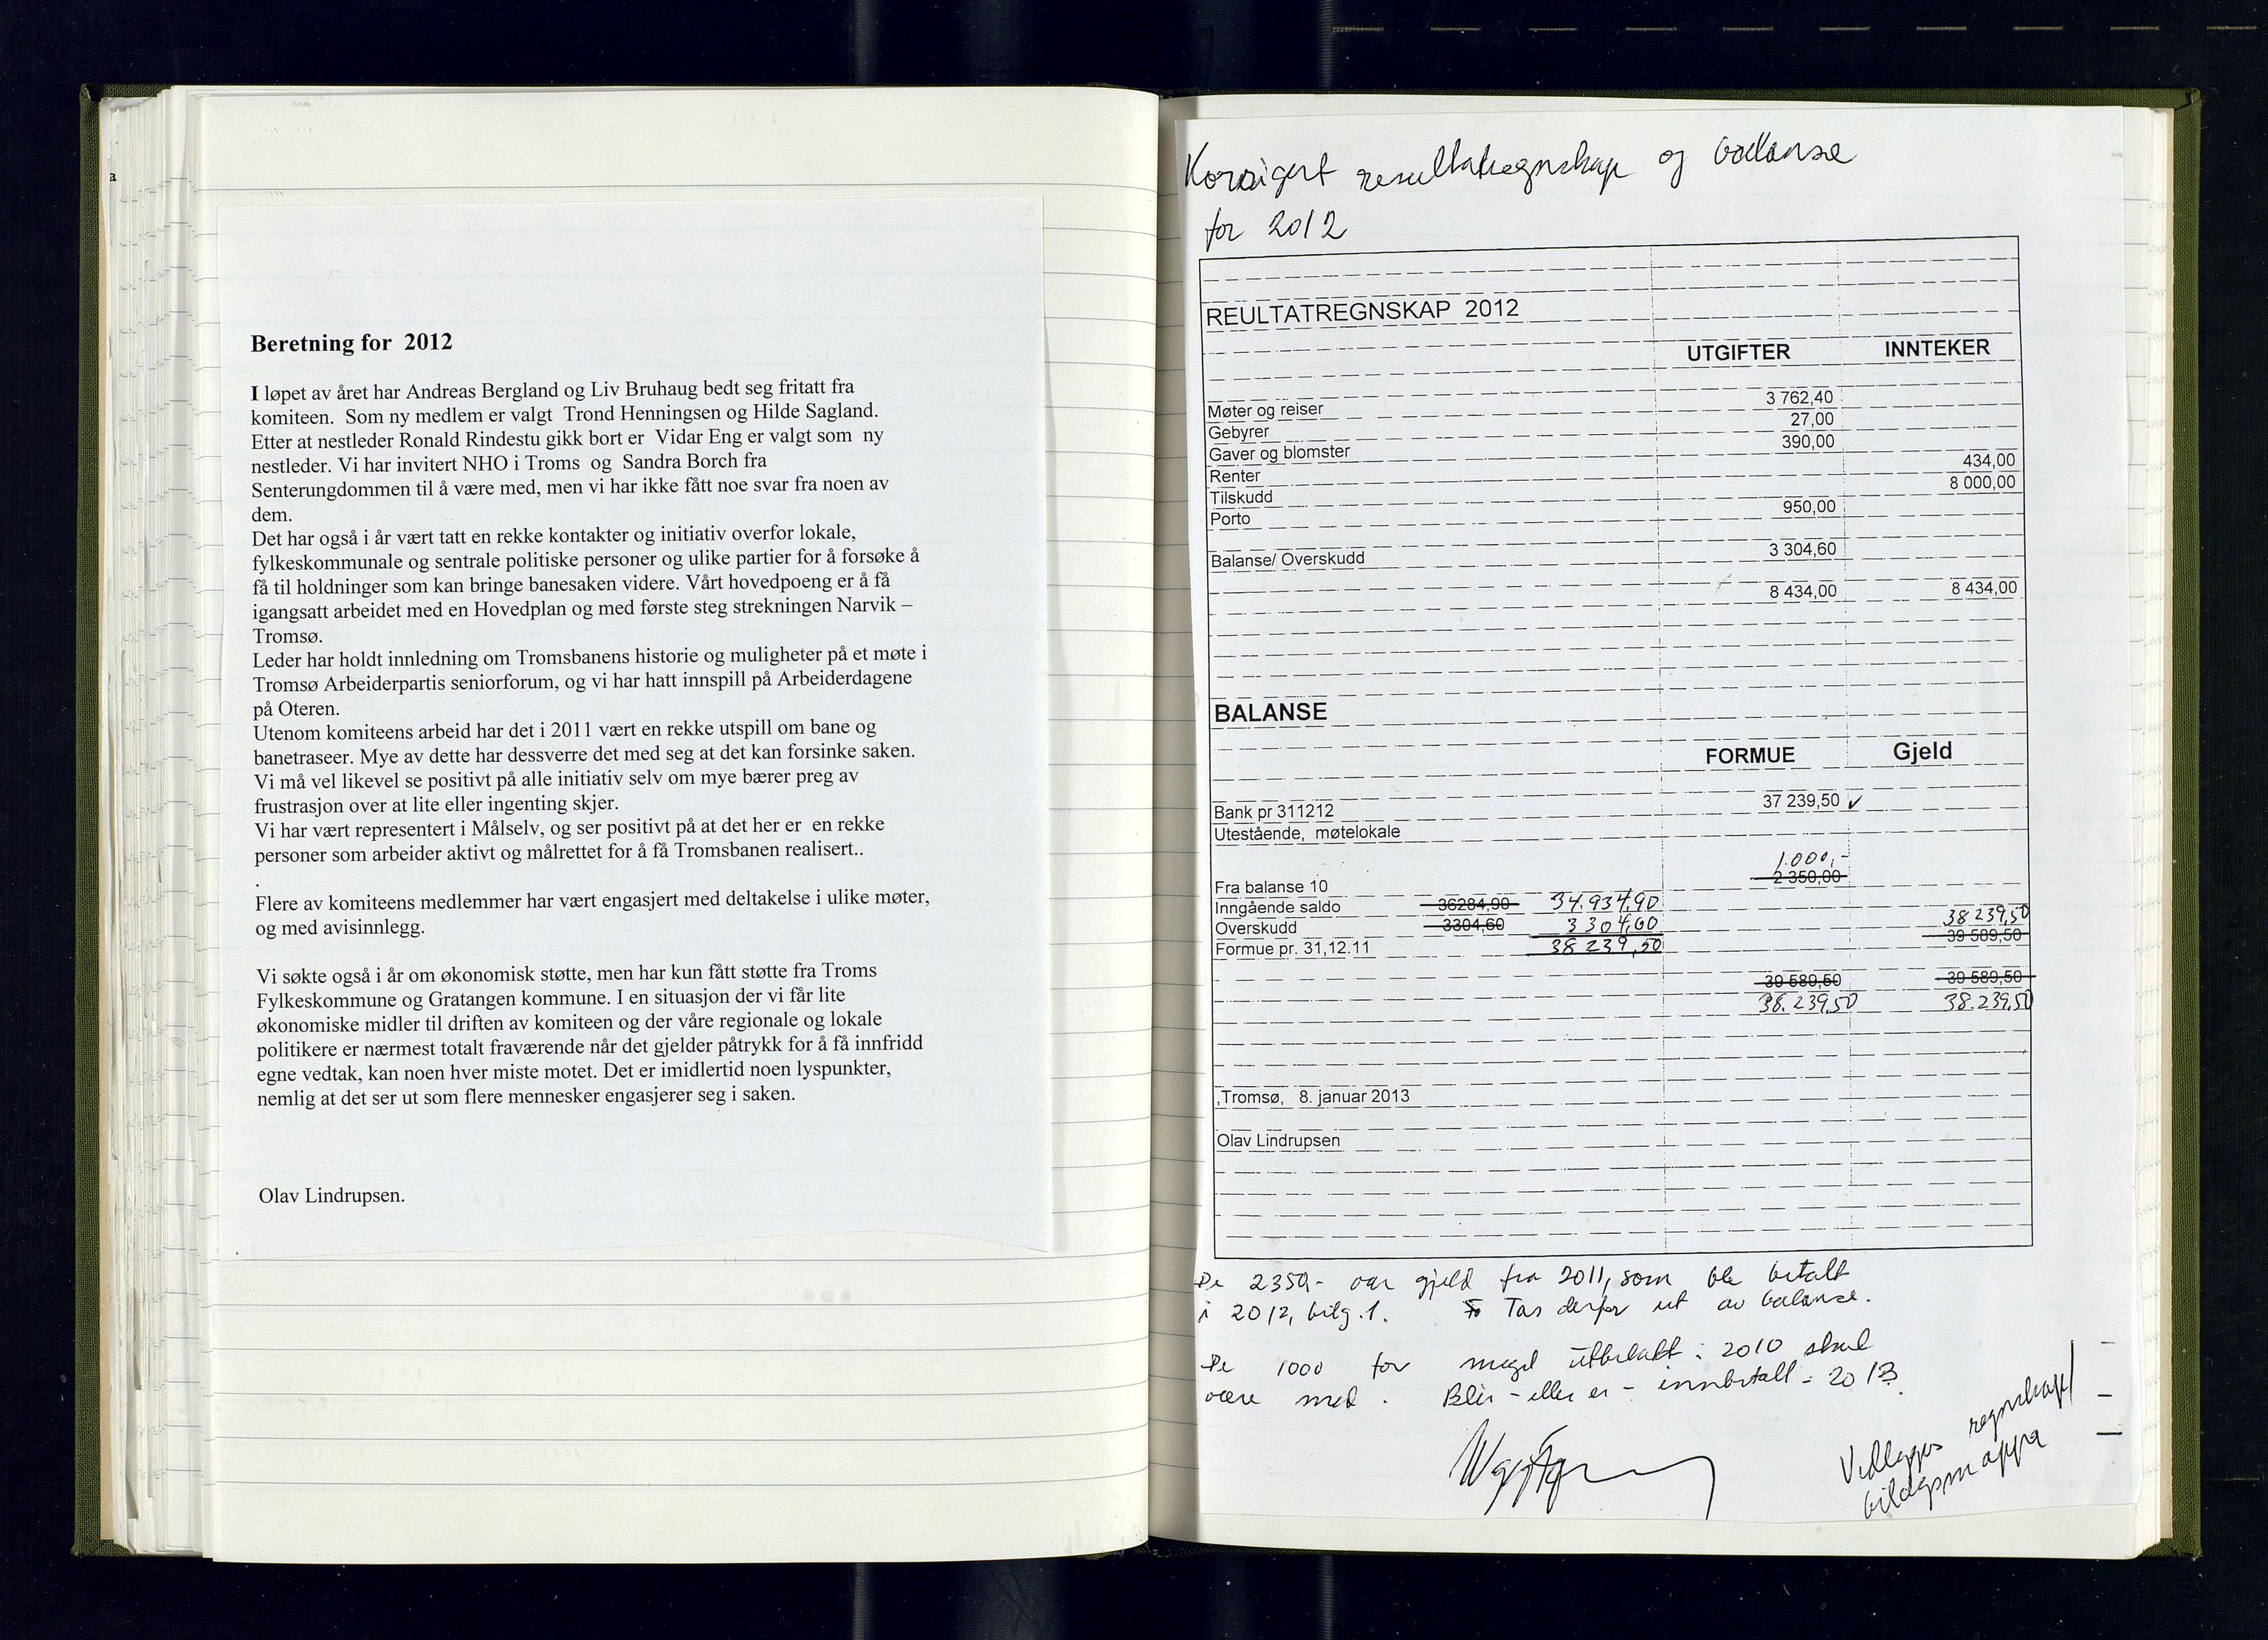 a
Beretning for 2012
I løpet av året har Andreas Bergland og Liv Bruhaug bedt seg fritatt fra
komiteen. Som ny medlem er valgt Trond Henningsen og Hilde Sagland.
Etter at nestleder Ronald Rindestu gikk bort er Vidar Eng er valgt som ny
nestleder. Vi har invitert NHO i Troms og Sandra Borch fra
Senterungdommen til å være med, men vi har ikke fått noe svar fra noen av
dem.
Det har også i år vært tatt en rekke kontakter og initiativ overfor lokale,
fylkeskommunale og sentrale politiske personer og ulike partier for å forsøke å
få til holdninger som kan bringe banesaken videre. Vårt hovedpoeng er å få
igangsatt arbeidet med en Hovedplan og med første steg strekningen Narvik –
Tromsø.
Leder har holdt innledning om Tromsbanens historie og muligheter på et møte i
Tromsø Arbeiderpartis seniorforum, og vi har hatt innspill på Arbeiderdagene
på Oteren.
Utenom komiteens arbeid har det i 2011 vært en rekke utspill om bane og
banetraseer. Mye av dette har dessverre det med seg at det kan forsinke saken.
Vi må vel likevel se positivt på alle initiativ selv om mye bærer preg av
frustrasjon over at lite eller ingenting skjer.
Vi har vært representert i Målselv, og ser positivt på at det her er en rekke
personer som arbeider aktivt og målrettet for å få Tromsbanen realisert..
.
Flere av komiteens medlemmer har vært engasjert med deltakelse i ulike møter,
og med avisinnlegg.
Vi søkte også i år om økonomisk støtte, men har kun fått støtte fra Troms
Fylkeskommune og Gratangen kommune. I en situasjon der vi får lite
økonomiske midler til driften av komiteen og der våre regionale og lokale
politikere er nærmest totalt fraværende når det gjelder påtrykk for å få innfridd
egne vedtak, kan noen hver miste motet. Det er imidlertid noen lyspunkter,
nemlig at det ser ut som flere mennesker engasjerer seg i saken.
Olav Lindrupsen.
Korrigert resultatregnskap og balanse
for 2012
REULTATREGNSKAP 2012
UTGIFTER INNTEKER
Møter og reiser 3 762,40
Gebyrer 27,00
Gaver og blomster 390,00
Renter 434,00
Tilskudd 8 000,00
Porto 950,00
Balanse/ Overskudd 3 304,60
8 434,00 8 434,00
BALANSE
FORMUE Gjeld
Bank pr 311212 37 239,50 ✓
Utestående, møtelokale
1.000,-
Fra balanse 10 2 350,00
Inngående saldo 36284,90 34.934,90
Overskudd 3304,60 3 304,60 38 239,50
Formue pr. 31,12.11 38 239,50 39 589,50
39 589,50 39 589,50
38.239,50 38.239,50
,Tromsø, 8. januar 2013
Olav Lindrupsen
De 2350,- var gjeld fra 2011, som ble betalt
i 2012, bilg.1. Tas derfor ut av balanse.
De 1000 for meget utbetalt i 2010 skal
være med. Blir - eller er - innbetalt i 2013.
Vedlegges regnskap/
bilagsmappa